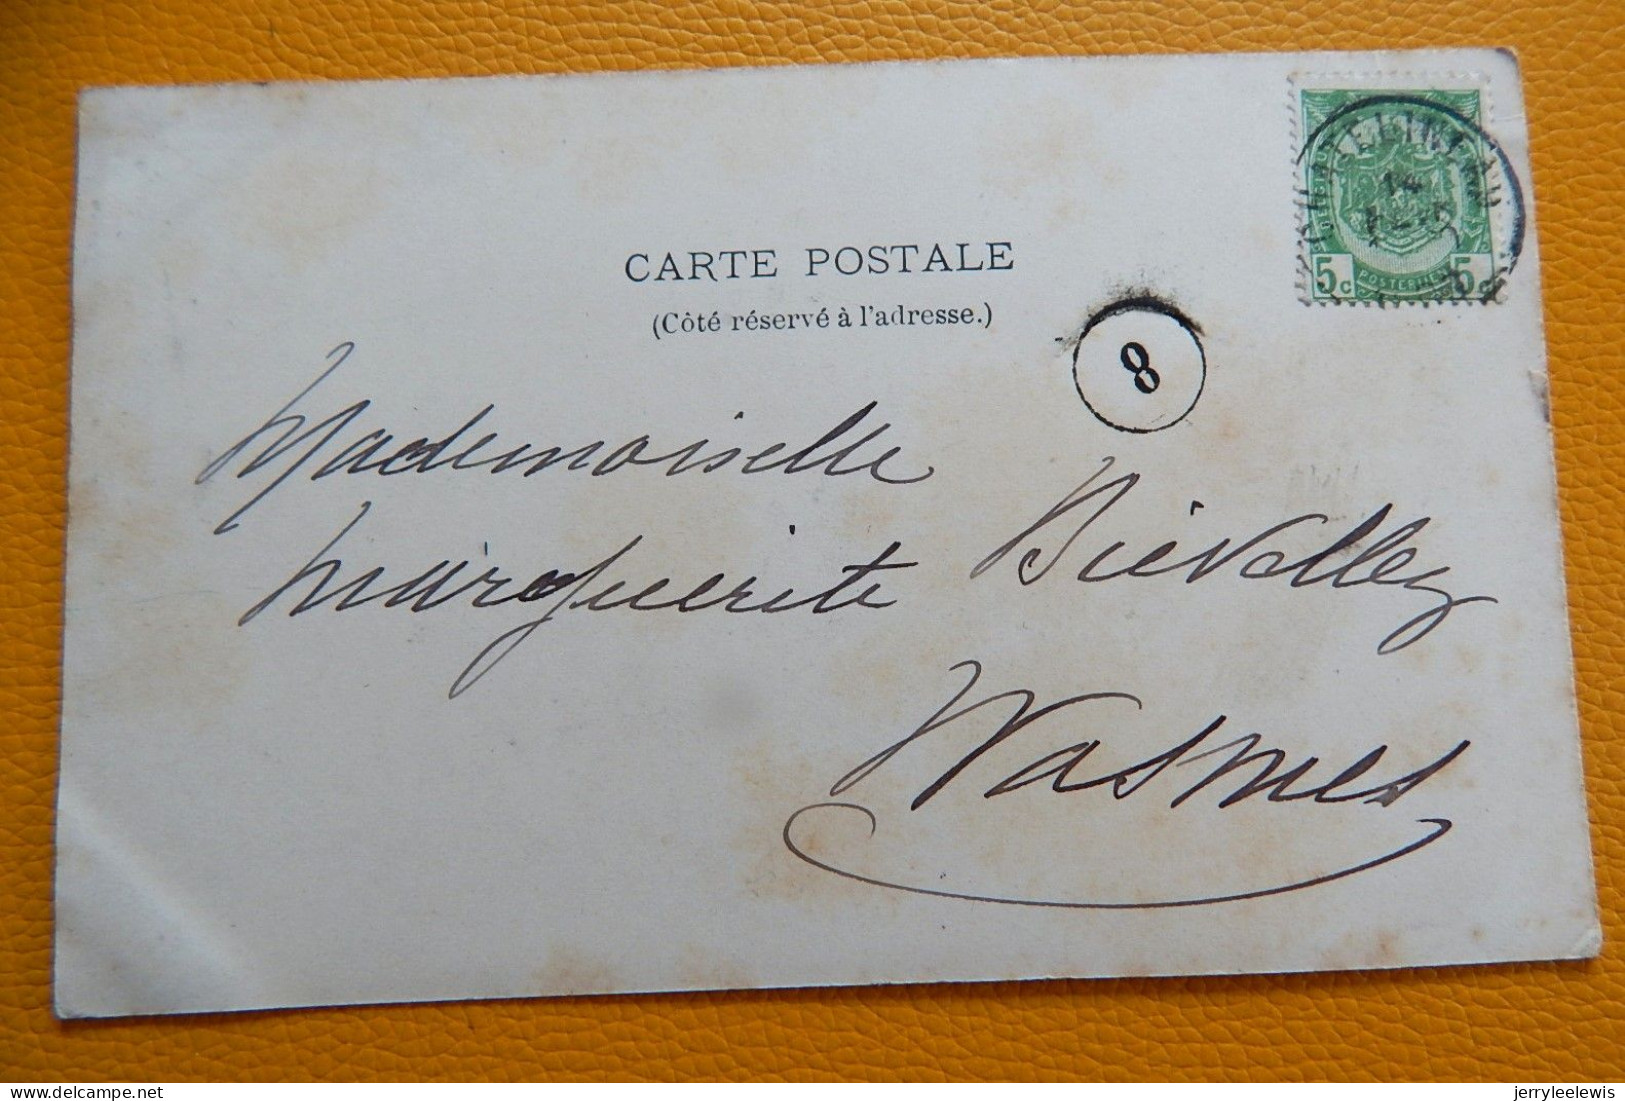 CARTE POSTALE
(Côté réservé à l'adresse.)
8
5c 5c
Mademoiselle
Marguerite
Wasmes
delcampe.net
jerryleelewis